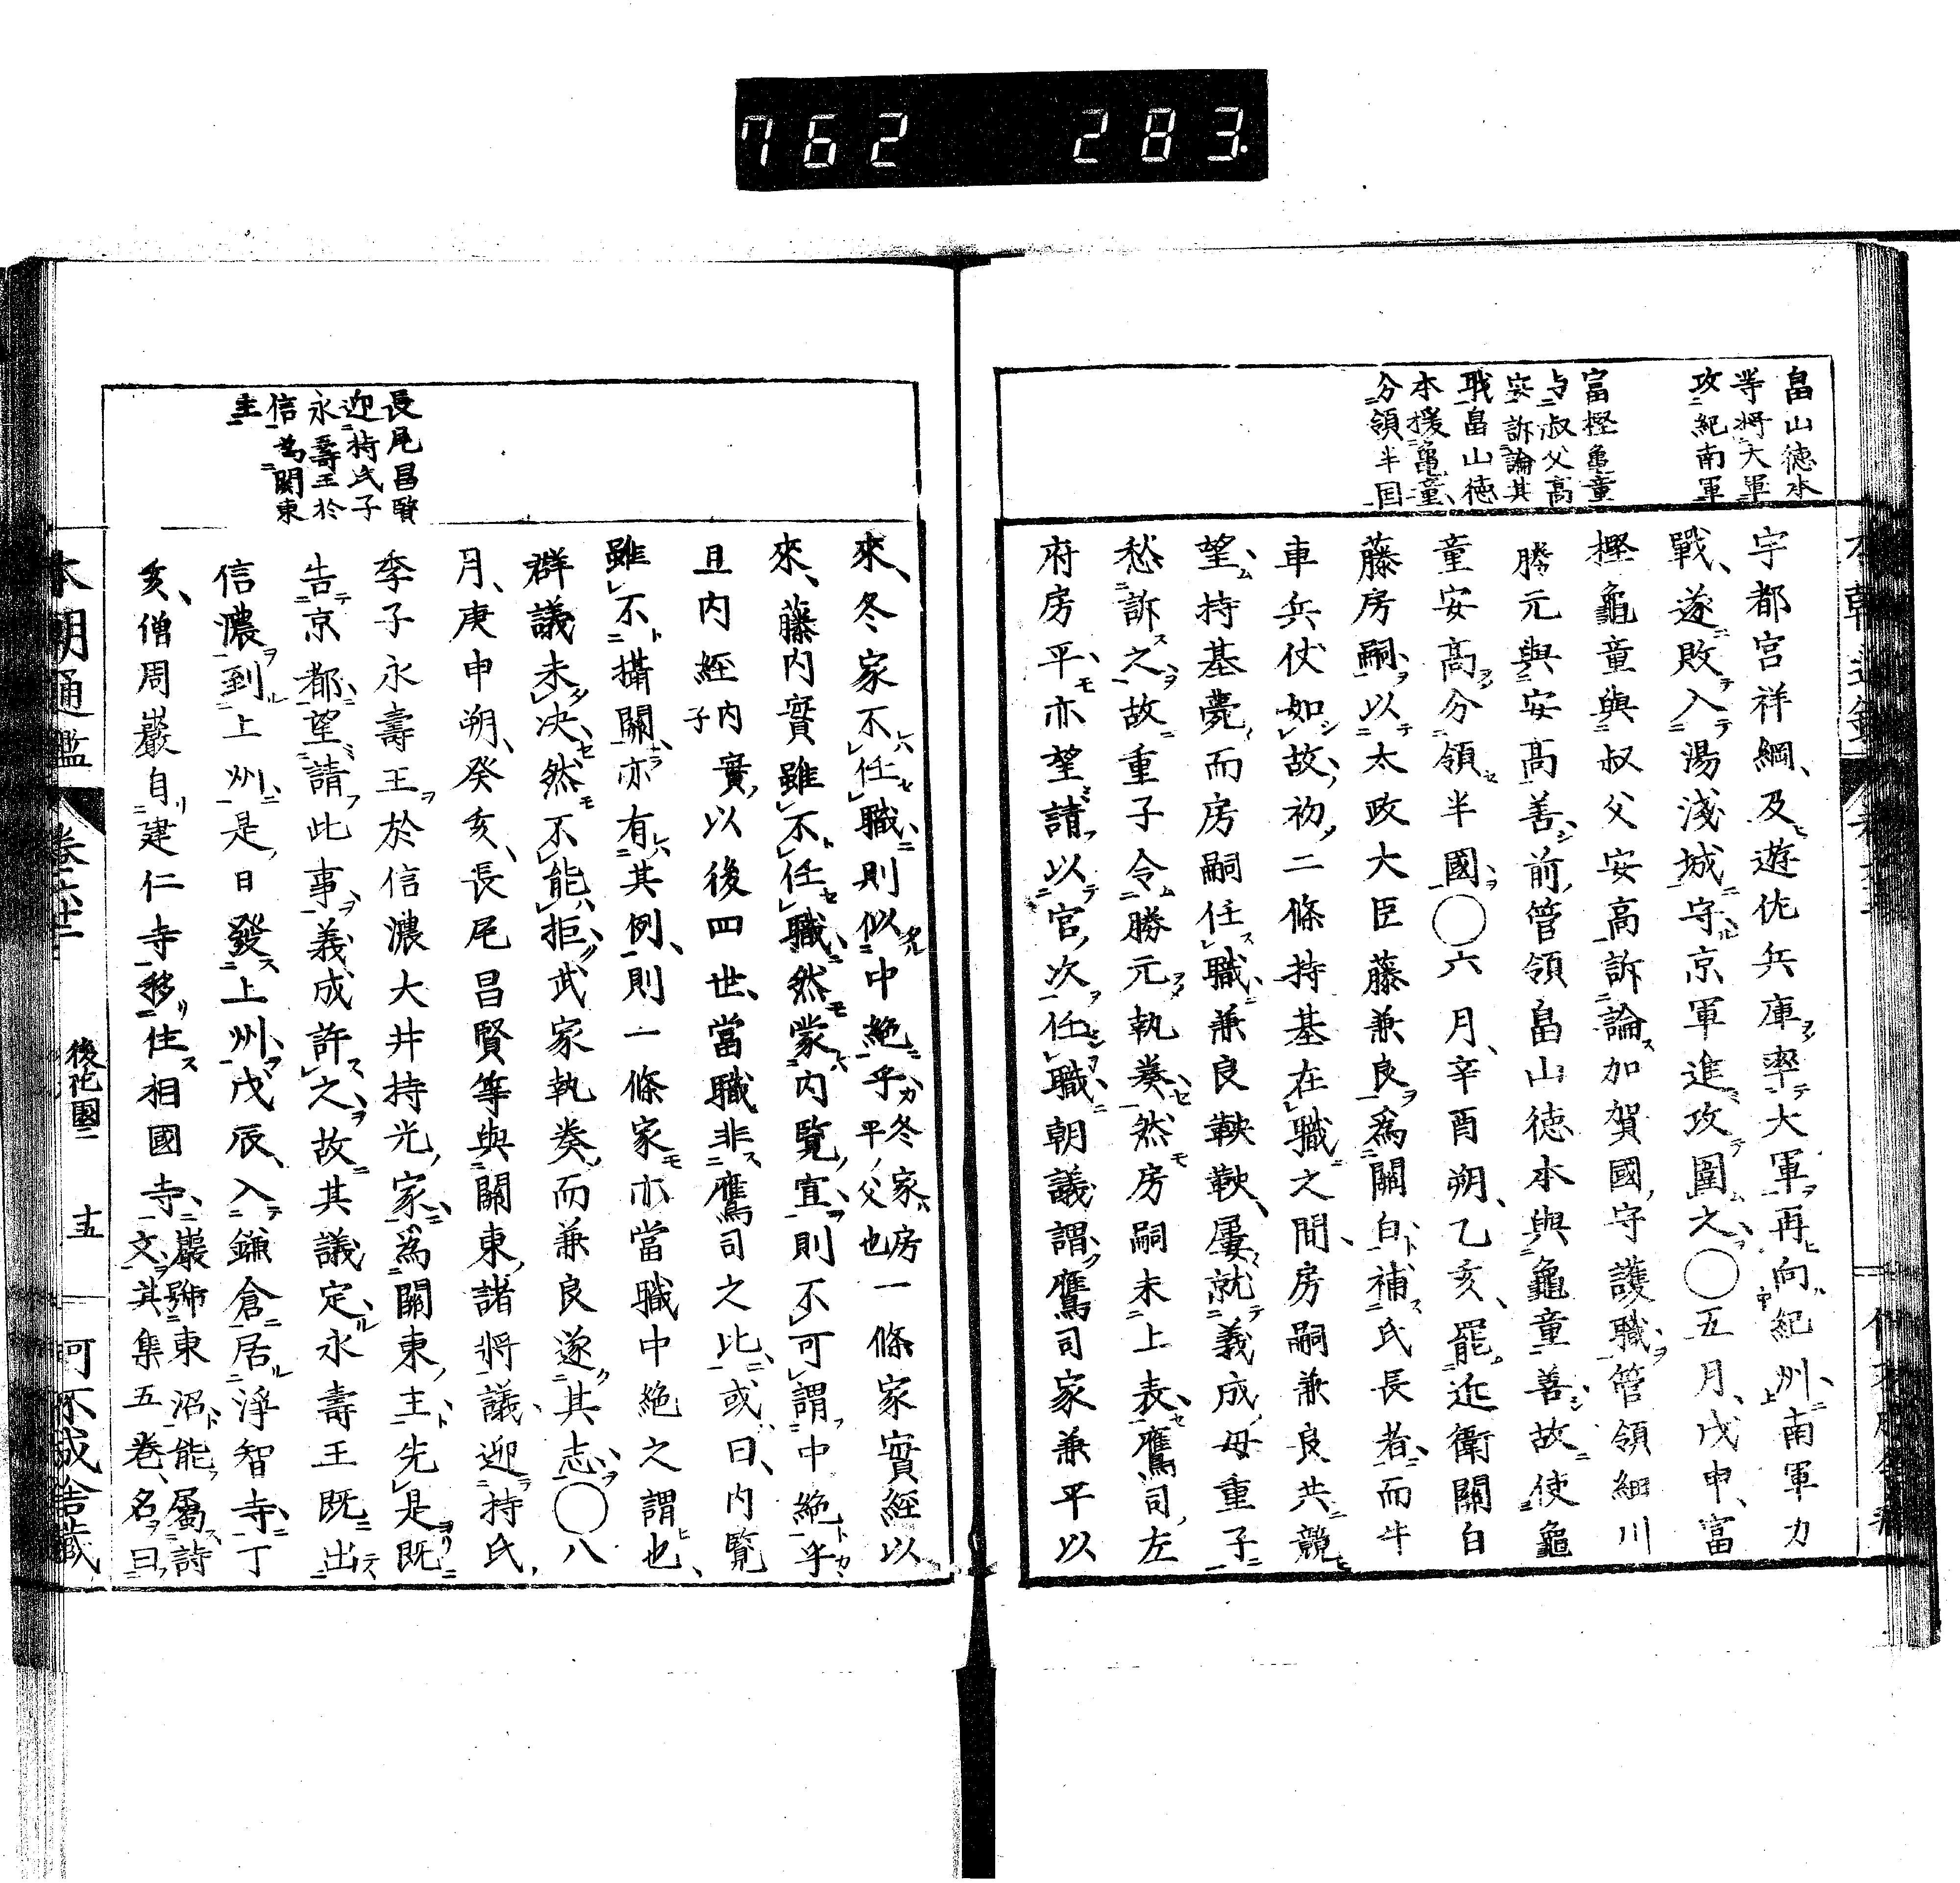 762 283
畠山德本
等將大軍
攻紀南軍
富樫亀童
与叔父高
安訴論其
戰畠山徳
本援亀童
分領半国
宇都宮祥綱、及遊佐兵庫率大軍再向紀州、南軍力
戰、遂敗入湯淺城守、京軍進攻圍之○五月、戊申、富
樫龜童與叔父安高訴論加賀國守護職、管領細川
勝元與安高善、前管領畠山德本與龜童善、故使龜
童安高分領半國○六月、辛酉朔、乙亥、罷近衛關白
藤房嗣、以太政大臣藤兼良爲關白、補氏長者、而牛
車兵仗如故、初二條持基在職之間、房嗣兼良共競
望、持基薨而房嗣任職、兼良鞅鞅、屢就義成母重子
愁訴之、故重子令勝元執奏、然房嗣未上表、鷹司左
府房平亦望請、以官次任職、朝議謂鷹司家兼平以
來、冬家不任職、則似中絶乎、冬家房平父也一條家實經以
來、藤內實雖不任職、然蒙內覽宣、則不可謂中絶乎、
且內經內實子以後四世、當職非鷹司之比、或曰、內覽
雖不攝關、亦有其例、則一條家亦當職中絶之謂也、
群議未決、然不能拒武家執奏、而兼良遂其志○八
月、庚申朔、癸亥、長尾昌賢等與關東諸將議、迎持氏
季子永壽王於信濃大井持光家、爲關東主、先是既
告京都、望請此事、義成許之、故其議定、永壽王既出
信濃、到上州、是日發上州、戊辰、入鎌倉居淨智寺、丁
亥、僧周巖自建仁寺移住相國寺、巖號東沼、能屬詩文、其集五卷、名曰
長尾昌賢
迎持氏子
永壽王於
信爲關東
主
本朝通鑑 後花園二 十五